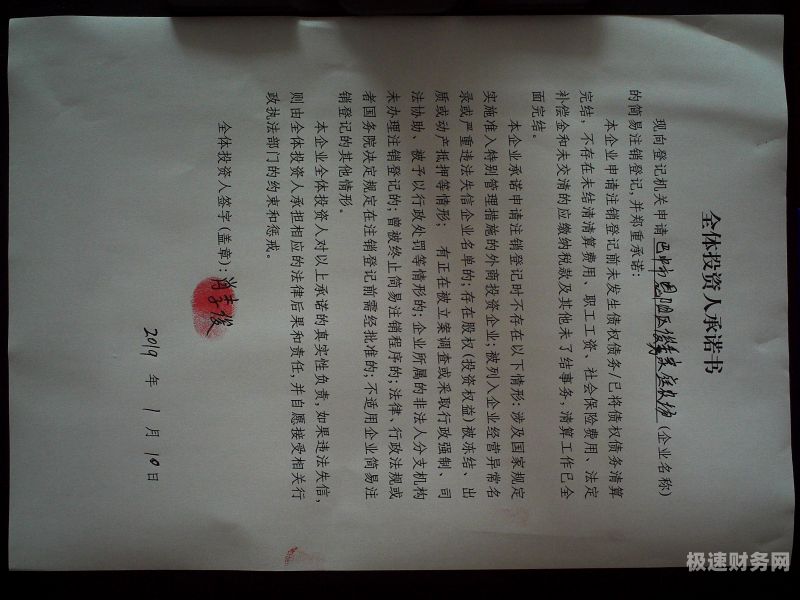 全体投资人承诺书
现向登记机关申请巴中市恩阳区俊秀家庭农场(企业名称)
的简易注销登记,并郑重承诺:
本企业申请注销登记前未发生债权债务/已将债权债务清算
完结,不存在未结清清算费用、职工工资、社会保险费用、法定
补偿金和未交清的应缴纳税款及其他未了结事务,清算工作已全
面完结。
本企业承诺申请注销登记时不存在以下情形:涉及国家规定
实施准入特别管理措施的外商投资企业;被列入企业经营异常名
录或严重违法失信企业名单的;存在股权(投资权益)被冻结、出
质或动产抵押等情形; 有正在被立案调查或采取行政强制、司
法协助、被予以行政处罚等情形的;企业所属的非法人分支机构
未办理注销登记的;曾被终止简易注销程序的;法律、行政法规或
者国务院决定规定在注销登记前需经批准的;不适用企业简易注
销登记的其他情形。
本企业全体投资人对以上承诺的真实性负责,如果违法失信,
则由全体投资人承担相应的法律后果和责任,并自愿接受相关行
政执法部门的约束和惩戒。
全体投资人签字(盖章):
2019 年 1 月 10 日
极速财务网